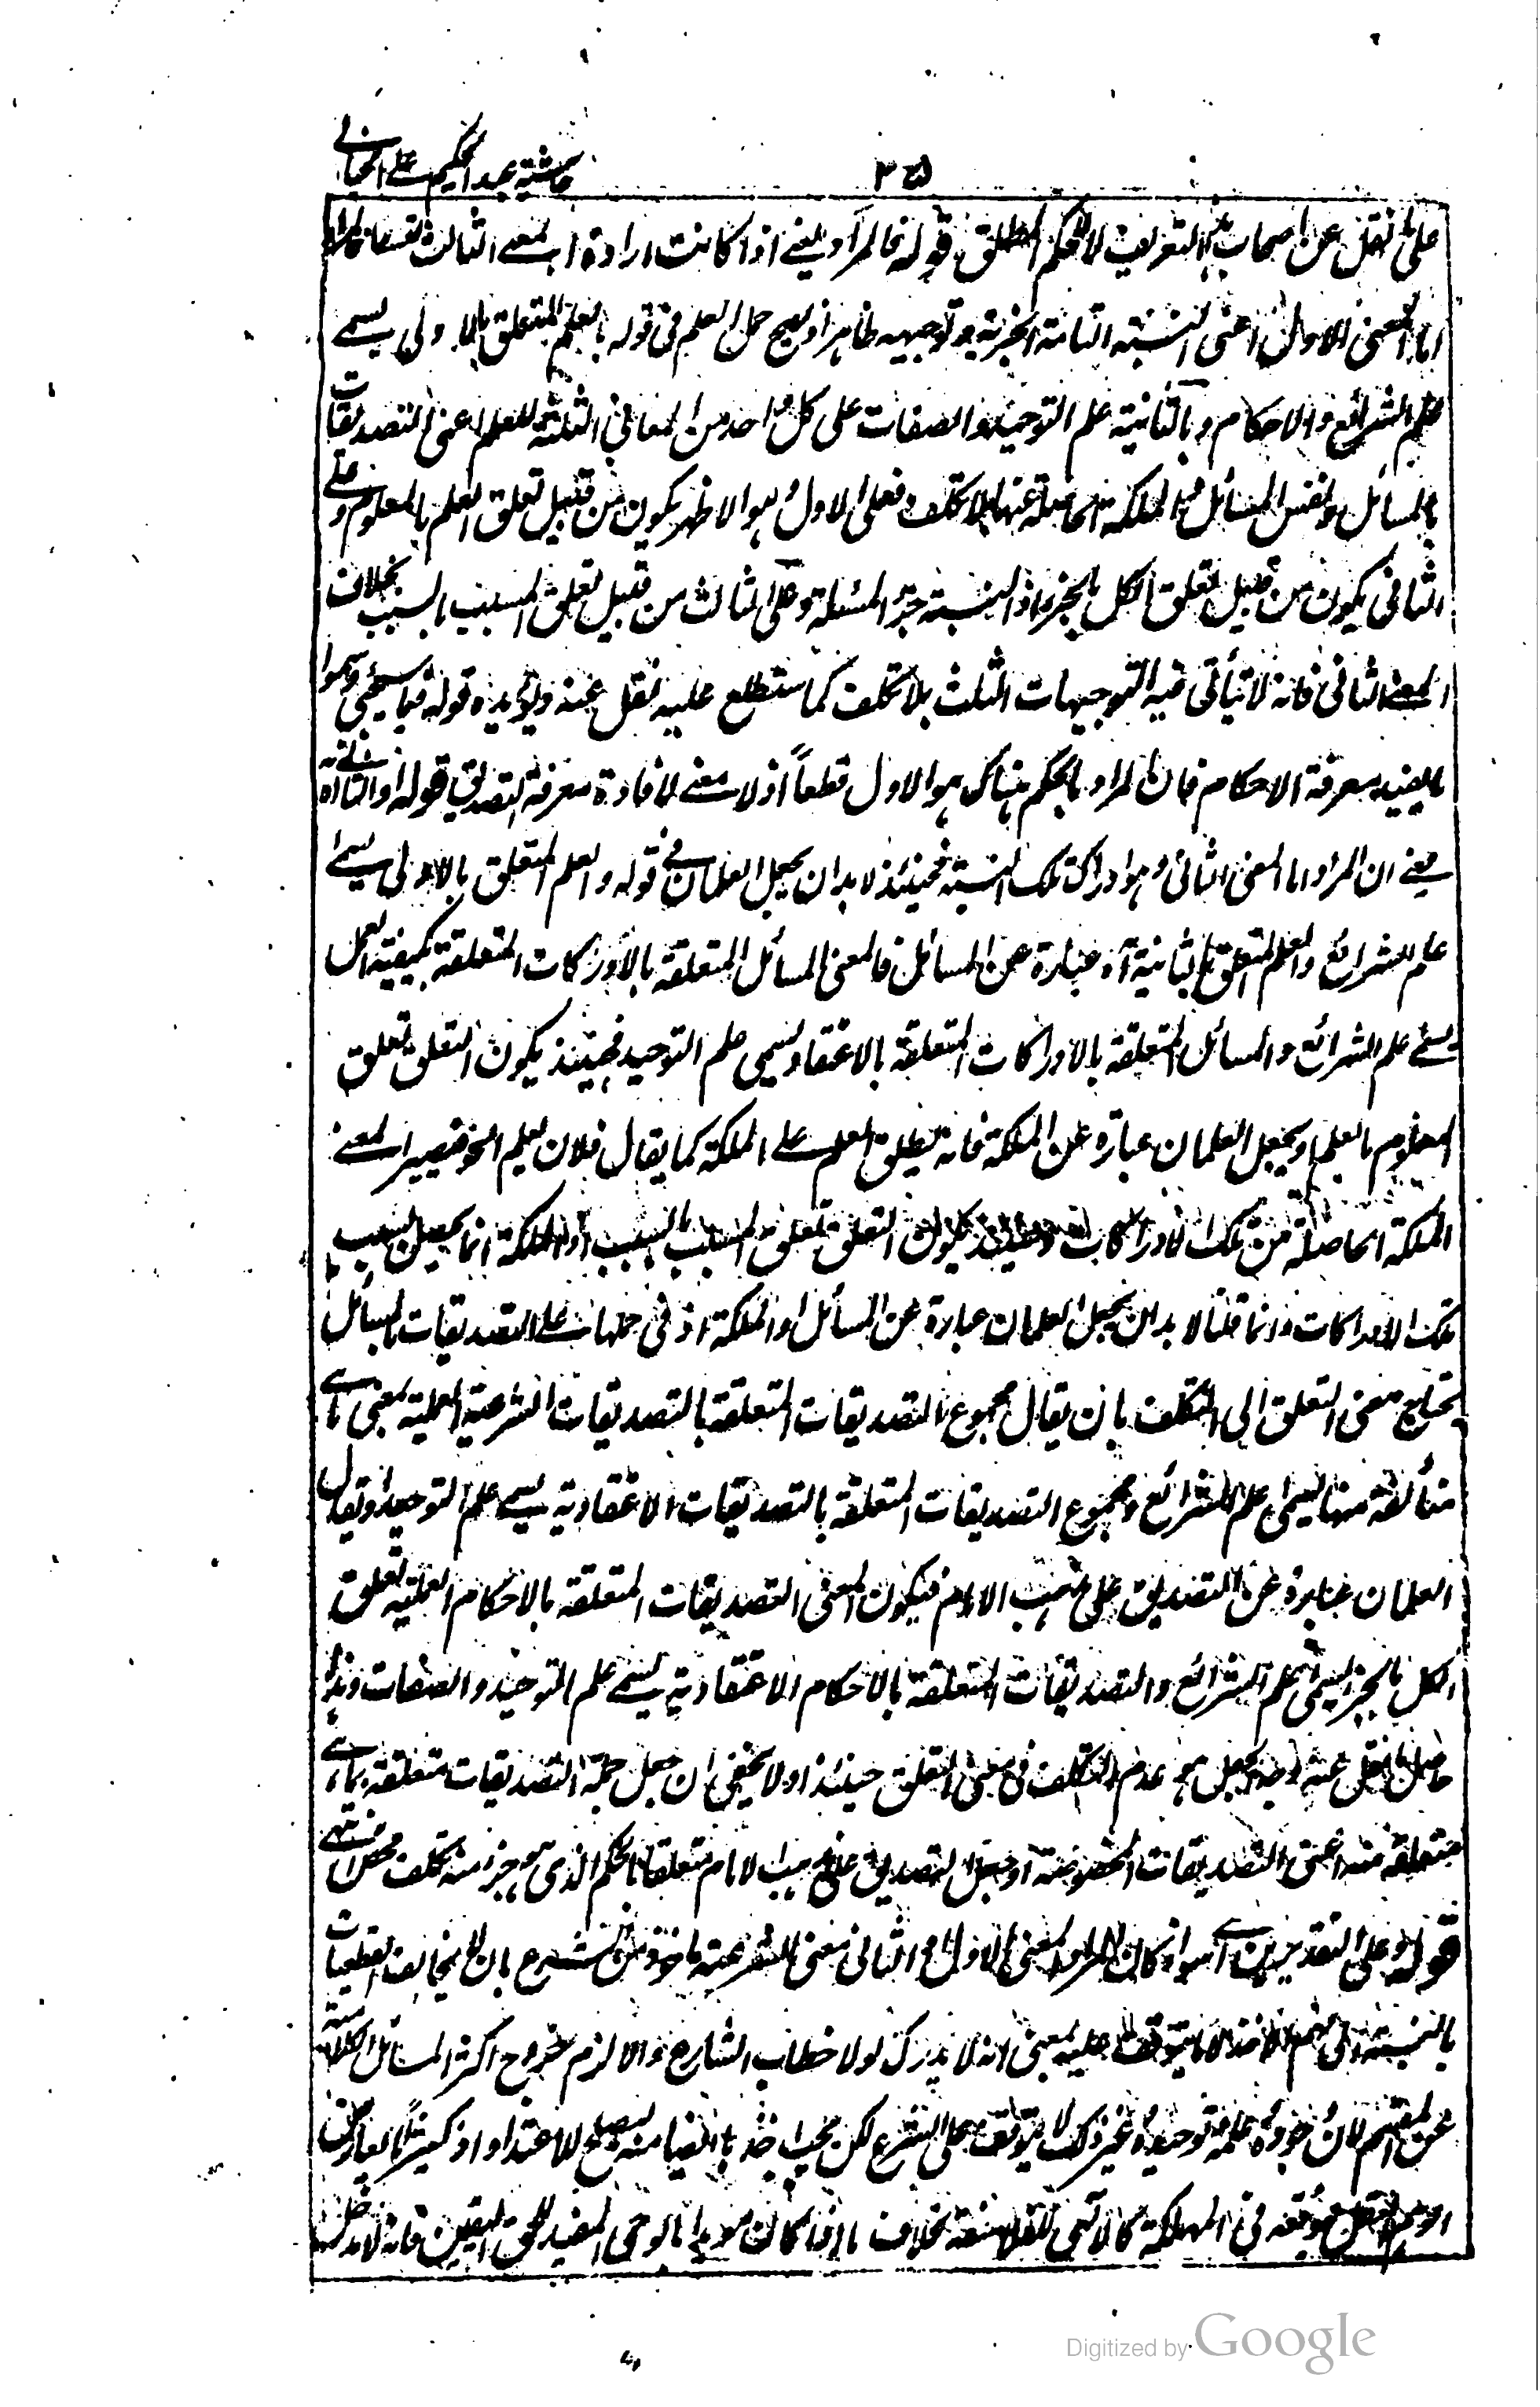 حاشية عبد الحكيم على الخيالى
٣٥
على ما نقل عن اصحاب هذا التعريف لا الحكم المطلق قوله فالمراد يعنى اذا كانت ارادة المعنى الثالث تعسفا فالمراد
اما المعنى الاول اعنى النسبة التامة الخبرية وتوجيهه ظاهر اذ يصح حمل العلم فى قوله بالعلم المتعلق بالاولى يسمى
علم الشرائع والاحكام وبالثانية علم التوحيد والصفات على كل واحد من المعانى الثلثة للعلم اعنى التصديقات
بالمسائل ونفس المسائل والملكة الحاصلة عنها بلا تكلف فعلى الاول وهو الاظهر يكون من قبيل تعلق العلم بالمعلوم وعلى
الثانى يكون من قبيل تعلق الكل بالجزء اذ النسبة جزء المسئلة وعلى الثالث من قبيل تعلق المسبب بالسبب بخلاف
المعنى الثانى فانه لا يتأتى فيه التوجيهات الثلث بلا تكلف كما ستطلع عليه نقل عنه ويؤيده قوله فيما سيجئ وسموا
ما يفيد معرفة الاحكام فان المراد بالحكم هناك هو الاول قطعاً اذ لا معنى لافادة معرفة التصديق قوله او الثانى آه
يعنى ان المراد اما المعنى الثانى وهو ادراك تلك النسبة فحينئذ لا بد ان يجعل العلمان فى قوله والعلم المتعلق بالاولى يسمى
علم الشرائع والعلم المتعلق بالثانية آه عبارة عن المسائل فالمعنى المسائل المتعلقة بالادراكات المتعلقة بكيفية العمل
يسمى علم الشرائع والمسائل المتعلقة بالادراكات المتعلقة بالاعتقاد يسمى علم التوحيد فحينئذ يكون التعلق تعلق
المعلوم بالعلم او يجعل العلمان عبارة عن الملكة فانه يطلق العلم على الملكة كما يقال فلان يعلم النحو فيصير المعنى
الملكة الحاصلة من تلك الادراكات وحينئذ يكون التعلق تعلق المسبب بالسبب اذ الملكة انما يحصل بسبب
تلك الادراكات وانما قلنا لا بد ان يجعل العلمان عبارة عن المسائل او الملكة اذ فى حملها على التصديقات بالمسائل
يحتاج معنى التعلق الى التكلف بان يقال مجموع التصديقات المتعلقة بالتصديقات الشرعية العملية بمعنى انها
متألفة منها يسمى علم الشرائع ومجموع التصديقات المتعلقة بالتصديقات الاعتقادية يسمى علم التوحيد او يقال
العلمان عبارة عن التصديق على مذهب الامام فيكون المعنى التصديقات المتعلقة بالاحكام العملية تعلق
الكل بالجزء يسمى علم الشرائع والتصديقات المتعلقة بالاحكام الاعتقادية يسمى علم التوحيد والصفات وهذا
حاصل ما نقل عنه وجه الجعل هو عدم التكلف فى معنى التعلق حينئذ اذ لا يخفى ان جعل جملة التصديقات متعلقة بما هى
متعلقة منه اعنى التصديقات المخصوصة او جعل التصديق على مذهب الامام متعلقا بالحكم الذى هو جزء منه تكلف محض انتهى
قوله وعلى التقديرين اى سواء كان المراد المعنى الاول او الثانى معنى الشرعية ما خوذ من الشرع بان لا يخالف القطعيات
بالنسبة الى فهم الاخذ لا ما يتوقف عليه بمعنى انه لا يدرك لولا خطاب الشارع والا لزم خروج اكثر المسائل الكلامية
عن المقسم لان وجوده وعلمه وتوحيده وغير ذلك لا يتوقف على الشرع لكن يجب اخذها ايضا منه ليصلح للاعتداد اذ كثيرا ما يعارض
الوهم العقل فيوقعه فى المهلكة كالآلهى للفلاسفة بخلاف ما اذا كان مؤيدا بالوحى المفيد للحق اليقين فانه لا مدخل